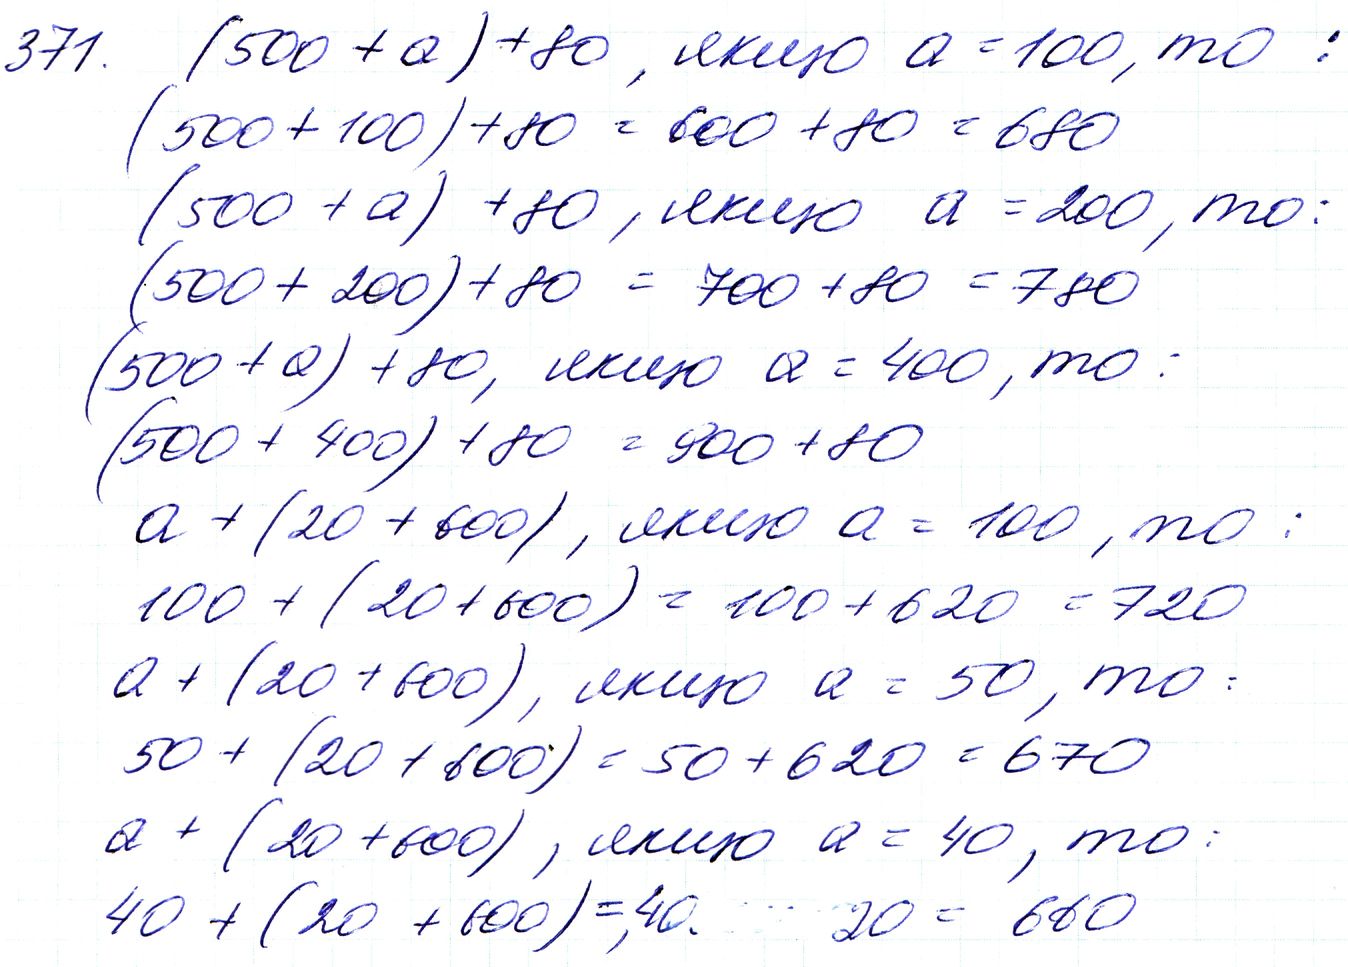 371. (500 + a) + 80, якщо a = 100, то :
(500 + 100) + 80 = 600 + 80 = 680
(500 + a) + 80, якщо a = 200, то :
(500 + 200) + 80 = 700 + 80 = 780
(500 + a) + 80, якщо a = 400, то :
(500 + 400) + 80 = 900 + 80
a + (20 + 600), якщо a = 100, то :
100 + (20 + 600) = 100 + 620 = 720
a + (20 + 600), якщо a = 50, то :
50 + (20 + 600) = 50 + 620 = 670
a + (20 + 600), якщо a = 40, то :
40 + (20 + 600) = 40 20 = 660